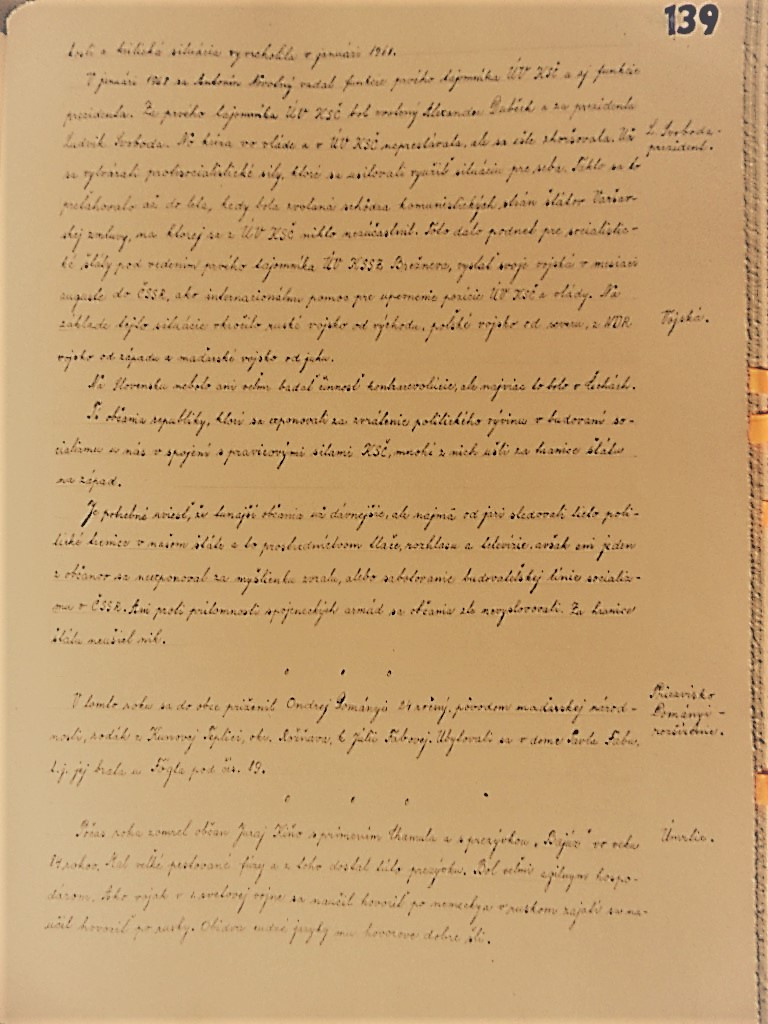 139
kosti a kritická situácia vyvrcholila v januári 1968.
V januári 1968 sa Antonín Novotný vzdal funkcie prvého tajomníka ÚV KSČ a aj funkcie
prezidenta. Za prvého tajomníka ÚV KSČ bol zvolený Alexander Dubček a za prezidenta
Ludvík Svoboda. No kríza vo vláde a v ÚV KSČ neprestávala, ale sa ešte zhoršovala. Už
L. Svoboda-
prezident.
sa vytvárali protisocialistické sily, ktoré sa usilovali využiť situáciu pre seba. Takto sa to
preťahovalo až do leta, kedy bola zvolaná schôdza komunistických strán štátov Varšav-
skej zmluvy, na ktorej sa z ÚV KSČ nikto nezúčastnil. Toto dalo podnet pre socialistic-
ké štáty pod vedením prvého tajomníka ÚV KSSZ Brežneva, vyslať svoje vojská v mesiaci
auguste do ČSSR, ako internacionálnu pomoc pre upevnenie pozície ÚV KSČ a vlády. Na
základe tejto situácie vkročilo ruské vojsko od východu, poľské vojsko od severu, z NDR
Vojská.
vojsko od západu a maďarské vojsko od juhu.
Na Slovensku nebolo ani veľmi badať činnosť kontrarevolúcie, ale najviac to bolo v Čechách.
Tí občania republiky, ktorí sa exponovali za zvrátenie politického vývinu v budovaní so-
cializmu u nás v spojení s pravicovými silami KSČ, mnohí z nich ušli za hranice štátu
na západ.
Je potrebné uviesť, že tunajší občania už dávnejšie, ale najmä od jari sledovali tieto poli-
tické trenice v našom štáte a to prostredníctvom tlače, rozhlasu a televízie, avšak ani jeden
z občanov sa neexponoval za myšlienku zvratu, alebo sabotovanie budovateľskej línie socializ-
mu v ČSSR. Ani proti prítomnosti spojeneckých armád sa občania zle nevyslovovali. Za hranice
štátu neušiel nik.
V tomto roku sa do obce priženil Ondrej Dományi 24 ročný, pôvodom maďarskej národ-
Priezvisko
Dományi -
rozšírenie.
nosti, rodák z Kunovej Teplici, okr. Rožňava, k Júlii Fabovej. Ubytovali sa v dome Pavla Fabu,
t.j. jej brata u Fögla pod čís. 19.
Počas roku zomrel občan Juraj Kiňo s prímením Chamula a s prezývkou „Bajúz" vo veku
Úmrtie.
84 rokov. Mal veľké pestované fúzy a z toho dostal túto prezývku. Bol veľmi spilným hospo-
dárom. Ako vojak v 1. svetovej vojne sa naučil hovoriť po nemecky a v ruskom zajatí sa na-
učil hovoriť po rusky. Obidva cudzie jazyky mu hovorove dobre šli.